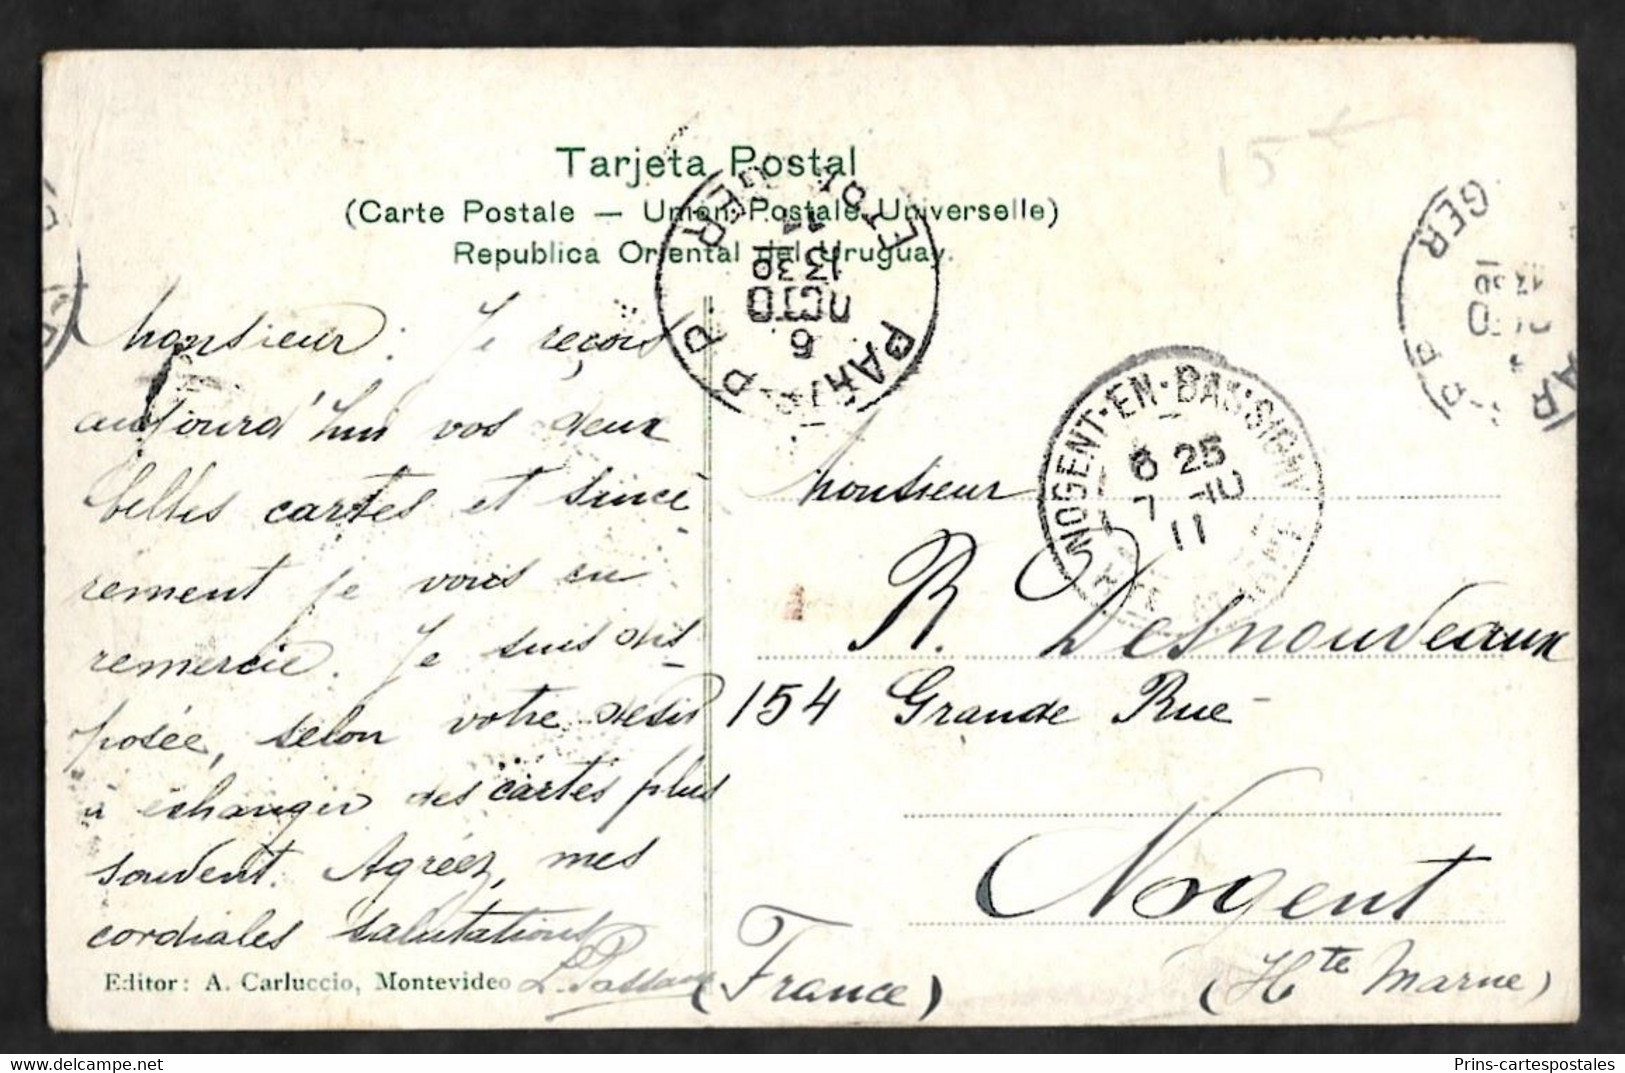 15
Tarjeta Postal
(Carte Postale — Union Postale Universelle)
Republica Oriental del Uruguay.
Monsieur : Je reçois
aujourd'hui vos deux
belles cartes et sincè
rement je vous en
remercie. Je suis dis-
posée, selon votre désir
à échanger des cartes plus
souvent. Agréez, mes
cordiales salutations
Editor: A. Carluccio, Montevideo
PARIS P P
ETRANGER
6
OCTO
1330
11
GER
P P
OCTO
NOGENT-EN-BASSIGNY
8 25
7 -10
11
Monsieur
R. Desnouveaux
154 Grande Rue
Nogent
(France)
(Hte Marne)
Prins-cartespostales